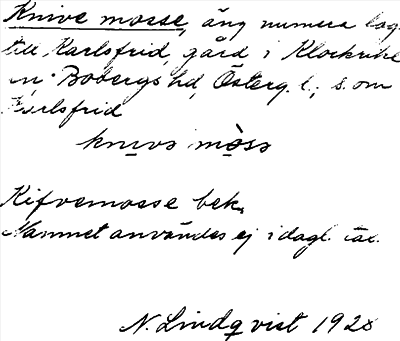 Knive mosse, äng numera lag.
till Karlsfrid, gård i Klockrike
sn. Bobergs hd, Österg. l.; s. om
Karlsfrid
knivə mòsə
Kifvemosse bek.
Namnet användes ej i dagl. tal.
N. Lindqvist 1928